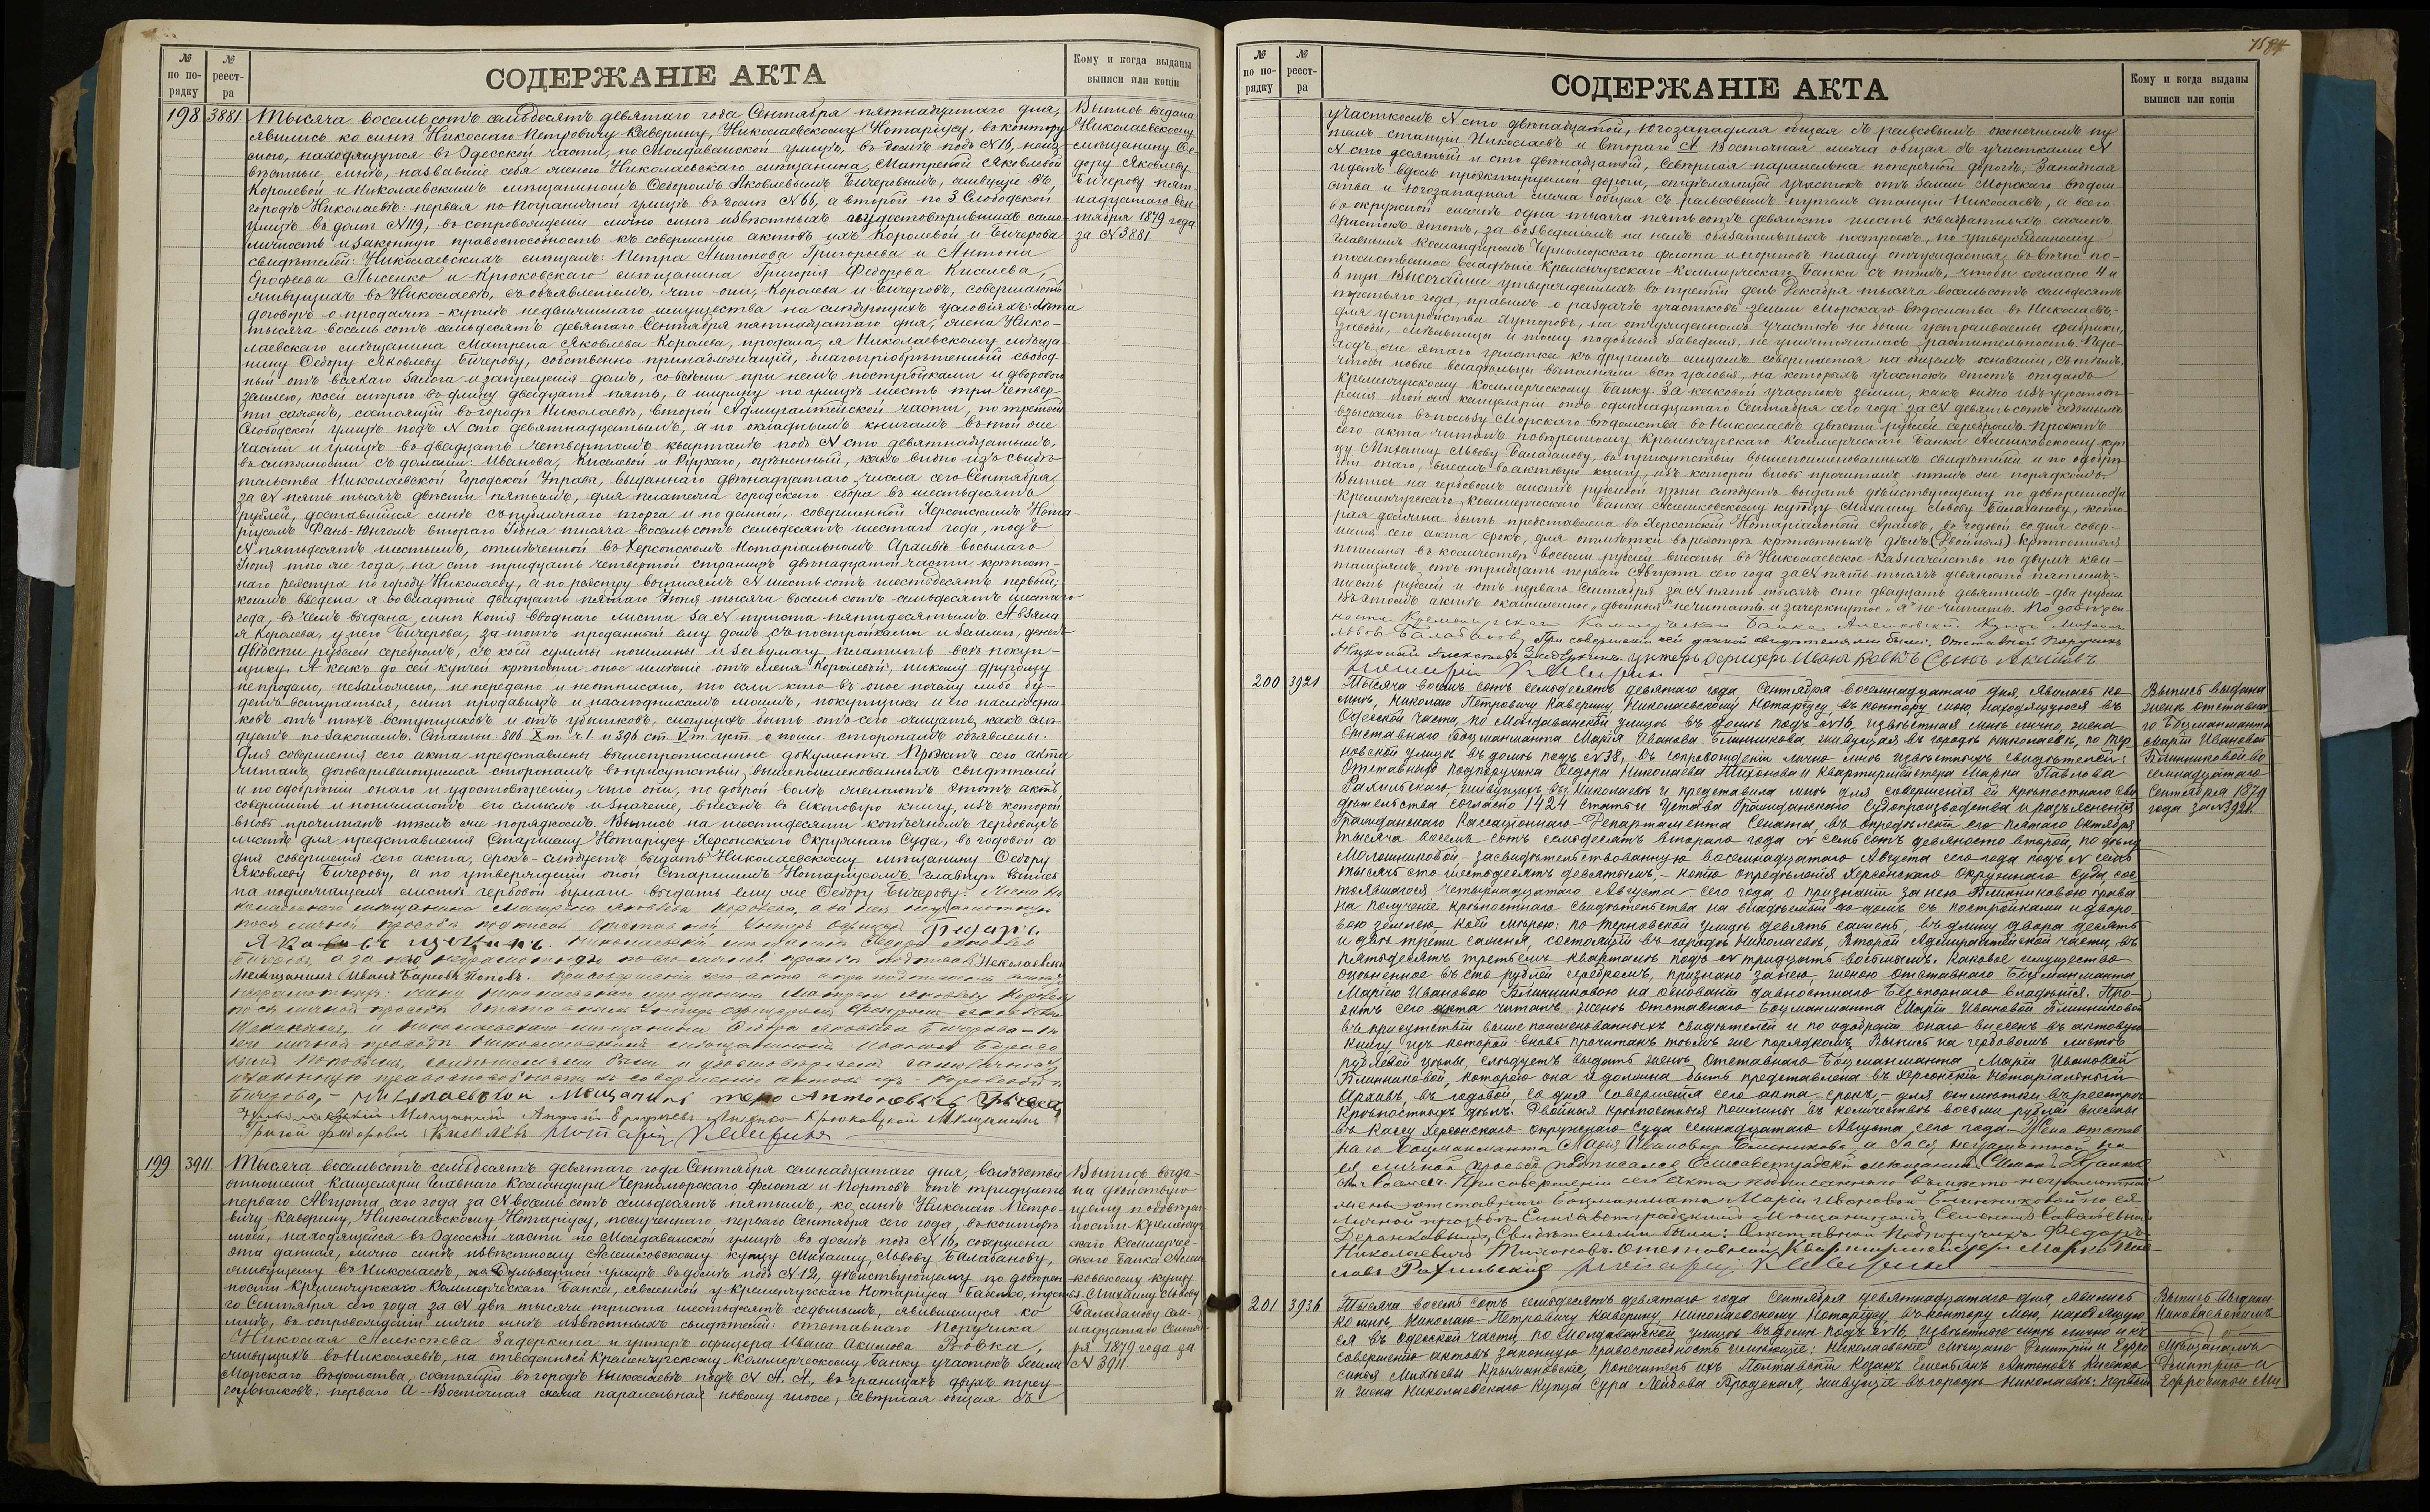 № по по-рядку
№ реест-ра
СОДЕРЖАНІЕ АКТА
Кому и когда выданы выписи или копіи
198 3881 Тысяча восемьсотъ семьдесятъ девятаго года Сентября пятнадцатаго дня,
явились ко мнѣ Николаю Петровичу Каверину, Николаевскому Нотаріусу, въ контору
мою, находящуюся въ Одесской части, по Молдаванской улицѣ, въ домѣ подъ № 16, неиз-
вѣстные мнѣ, назвавшіе себя женою Николаевскаго мѣщанина, Матреной Яковлевой
Королевой и Николаевскимъ мѣщаниномъ Ѳедоромъ Яковлевымъ Бичеровымъ, живущіе въ
городѣ Николаевѣ: первая по Пограничной улицѣ въ домѣ № 66, а второй по 3 Слободской
улицѣ въ домѣ № 119, въ сопровожденіи лично мнѣ извѣстныхъ и удостовѣрившихъ само-
личность и законную правоспособность къ совершенію актовъ ихъ Королевой и Бичерова
свидѣтелей: Николаевскихъ мѣщанъ: Петра Антонова Григорьева и Антона
Ерофеева Лысенко и Крюковскаго мѣщанина Григорія Федорова Киселева,
живущихъ въ Николаевѣ, съ объявленіемъ, что они, Королева и Бичеровъ, совершаютъ
договоръ о продажѣ-куплѣ недвижимаго имущества на слѣдующихъ условіяхъ: Лѣта
тысяча восемь сотъ семьдесятъ девятаго Сентября пятнадцатаго дня, жена Нико-
лаевскаго мѣщанина Матрена Яковлева Королева, продала я Николаевскому мѣща-
нину Ѳедору Яковлеву Бичерову, собственно принадлежащій, благопріобрѣтенный свобод-
ный отъ всякаго залога и запрещенія домъ, со всѣми при немъ постройками и дворовою
землею, коей мѣрою въ длину двадцать пять, а ширину по улицѣ шесть три четвер-
ти саженъ, состоящій въ городѣ Николаевѣ, второй Адмиралтейской части, по третьей
Слободской улицѣ подъ № сто девятнадцатымъ, а по окладнымъ книгамъ въ той же
части и улицѣ въ двадцать четвертомъ кварталѣ подъ № сто девятнадцатымъ,
въ смежности съ домами: Иванова, Киселевой и Руцкаго, оцѣненный, какъ видно изъ свидѣ-
тельства Николаевской Городской Управы, выданнаго двѣнадцатаго числа сего Сентября,
за № пять тысячъ двѣсти пятымъ, для платежа городскаго сбора въ шестьдесятъ
рублей, доставшійся мнѣ съ публичнаго торга и по данной, совершенной Херсонскимъ Нота-
ріусомъ Фанъ-Юнгомъ втораго Іюня тысяча восемьсотъ семьдесятъ шестаго года, подъ
№ пятьдесятъ шестымъ, отмѣченной въ Херсонскомъ Нотаріальномъ Архивѣ восьмаго
Іюня того же года, на сто тридцать четвертой страницѣ двѣнадцатой части крѣпост-
наго реестра по городу Николаеву, а по реестру вотчиннъ № шесть сотъ шестьдесятъ первой;
коимъ введена я во владѣніе двадцать пятаго Іюня тысяча восемь сотъ семьдесятъ шестаго
года, въ чемъ выдана мнѣ копія вводнаго листа за № триста пятидесятымъ. А взяла
я Королева, у него Бичерова, за тотъ проданный ему домъ съ постройками и землею, денегъ
двѣсти рублей серебромъ, съ коей суммы пошлины и за бумагу платить всѣ покуп-
щику. А какъ до сей купчей крѣпости оное имѣніе отъ меня Королевой, никому другому
не продано, не заложено, не передано и не отписано, то если кто въ оное почему либо бу-
детъ вступаться, мнѣ продавцѣ и наслѣдникамъ моимъ, покупщика и его наслѣдни-
ковъ отъ тѣхъ вступщиковъ и отъ убытковъ, могущихъ быть отъ сего очищать какъ слѣ-
дуетъ по законамъ. Статьи: 806 X т. ч 1. и 396 ст. V т. уст. о пошл. сторонамъ объявлены.
Для совершенія сего акта представлены вышепрописанные документы. Проектъ сего акта
читанъ договаривающимся сторонамъ въ присутствіи вышепоименованныхъ свидѣтелей
и по одобреніи онаго и удостовѣреніи, что они, по доброй волѣ желаютъ этотъ актъ
совершить и понимаютъ его смыслъ и значеніе, внесенъ въ актовую книгу, изъ которой
вновь прочитанъ тѣмъ же порядкомъ. Выпись на шестидесяти копѣечномъ гербовомъ
листѣ для представленія Старшему Нотаріусу Херсонскаго Окружнаго Суда, въ годовой со
дня совершенія сего акта, срокъ-слѣдуетъ выдать Николаевскому мѣщанину Ѳедору
Яковлеву Бичерову, а по утвержденіи оной Старшимъ Нотаріусомъ, главную выпись
на подлежащемъ листѣ гербовой бумаги выдать ему же Ѳедору Бичерову. Жена Ни-
колаевскаго мѣщанина Матрена Яковлева Королева, а за нея неграмотную
по ея личной просьбѣ подписалъ Отставной Унтеръ Офицеръ
Николаевскій мѣщанинъ Ѳедоръ Яковлевъ
Бичеровъ, а за него неграмотнаго по его личной просьбѣ подписалъ Николаевскій
Мѣщанинъ Иванъ Поповъ. При совершеніи сего акта и при подписаніи вмѣсто
неграмотныхъ: жены Николаевскаго мѣщанина Матрены Яковлевой Королевой
по ея личной просьбѣ Отставнымъ Унтеръ Офицеромъ
и Николаевскаго мѣщанина Ѳедора Яковлева Бичерова – по
его личной просьбѣ Николаевскимъ мѣщаниномъ Иваномъ
Поповымъ, свидѣтелями были и удостовѣряемъ самоличность
и законную правоспособность къ совершенію актовъ ихъ Королевой и
Бичерова, – Николаевскій Мещанинъ Петръ Антоновичъ
Николаевскій Мѣщанинъ Антонъ Ерофеевъ Лысенко Крюковской Мѣщанинъ
Григорій Федоровъ Киселевъ Нотаріусъ Каверинъ
Выпись выдана
Николаевскому
мѣщанину Ѳе-
дору Яковлеву
Бичерову пят-
надцатаго Сен-
тября 1879 года
за № 3881
199 3911. Тысяча восемьсотъ семьдесятъ девятаго года Сентября семнадцатаго дня, вслѣдствіе
отношенія Канцеляріи Главнаго Командира Черноморскаго флота и портовъ отъ тридцать
перваго Августа сего года за № восемь сотъ семьдесятъ пятымъ, ко мнѣ Николаю Петро-
вичу Каверину, Николаевскому Нотаріусу, полученнаго перваго Сентября сего года, въ конторѣ
моей, находящейся въ Одесской части по Молдаванской улицѣ въ домѣ подъ № 16, совершена
эта данная, лично мнѣ извѣстному Алешковскому купцу Михаилу Львову Балабанову,
живущему въ Николаевѣ, на Бульварной улицѣ въ домѣ подъ № 12, дѣйствующему по довѣрен-
ности Кременчугскаго Коммерческаго Банка, явленной у Кременчугскаго Нотаріуса Бабенко, третья-
го Сентября сего года за № двѣ тысячи триста шестьдесятъ седьмымъ, явившемуся ко
мнѣ, въ сопровожденіи лично мнѣ извѣстныхъ свидѣтелей: отставнаго Поручика
Николая Алексѣева Задеркина и унтеръ офицера Ивана Акимова Вовка,
живущихъ въ Николаевѣ, на отведенный Кременчугскому Коммерческому Банку участокъ земли
Морскаго вѣдомства, состоящій въ городѣ Николаевѣ подъ № А. А., въ границахъ двухъ треу-
гольниковъ: перваго А-Восточная межа паралельная новому шоссе; Сѣверная общая съ
Выпись выда-
на дѣйствую-
щему по довѣрен-
ности Кременчуг-
скаго Коммерче-
скаго Банка Алеш-
ковскому купцу
Михаилу Львову
Балабанову сем-
надцатаго Сентяб-
ря 1879 года за
№ 3911.
№ по по-рядку
№ реест-ра
СОДЕРЖАНІЕ АКТА
Кому и когда выданы выписи или копіи
участкомъ № сто двѣнадцатой, югозападная общая съ рельсовымъ оконечнымъ пу-
темъ станціи Николаевъ и втораго А Восточная межа общая съ участками №
№ сто десятый и сто двѣнадцатой, Сѣверная паралельна поперечной дорогѣ; Западная
идетъ вдоль проэктируемой дороги, отдѣляющей участокъ отъ земли Морскаго вѣдом-
ства и югозападная межа общая съ рельсовымъ путемъ станціи Николаевъ, а всего
въ окружной межѣ одна тысяча пятьсотъ девяносто шесть квадратныхъ саженъ.
Участокъ этотъ, за возведеніемъ на немъ обязательныхъ построекъ, по утвержденному
Главнымъ Командиромъ Черноморскаго флота и портовъ плану отчуждается въ вѣчно по-
томственное владѣніе Кременчугскаго Коммерческаго Банка съ тѣмъ, чтобы согласно 4 и
6 пун. Высочайше утвержденныхъ въ третій день Декабря тысяча восемьсотъ семьдесятъ
третьяго года, правилъ о раздачѣ участковъ земли Морскаго вѣдомства въ Николаевѣ,-
для устройства хуторовъ, на отчужденномъ участкѣ не были устраиваемы фабрики,
заводы, мѣльницы и тому подобныя заведенія, не уничтожалась растительность. Пере-
ходъ же этаго участка къ другимъ лицамъ совершается на общемъ основаніи, съ тѣмъ,
чтобы новые владѣльцы выполнили всѣ условія, на которыхъ участокъ этотъ отданъ
Кременчугскому Коммерческому Банку. За каковой участокъ земли, какъ видно изъ удостовѣ-
ренія той же канцеляріи отъ одиннадцатаго Сентября сего года за № девятьсотъ седьмымъ
взыскано въ пользу Морскаго вѣдомства въ Николаевѣ двѣсти рублей серебромъ. Проектъ
сего акта читанъ повѣренному Кременчугскаго Коммерческаго Банка Алешковскому куп-
цу Михаилу Львову Балабанову, въ присутствіи вышепоименованныхъ свидѣтелей и по одобре-
ніи онаго, внесенъ въ актовую книгу, изъ которой вновь прочитанъ тѣмъ же порядкомъ.
Выпись на гербовомъ листѣ рублевой цѣны слѣдуетъ выдать дѣйствующему по довѣренности
Кременчугскаго Коммерческаго Банка Алешковскому купцу Михаилу Львову Балабанову, кото-
рая должна быть представлена въ Херсонскій Нотаріальный Архивъ, въ годовой со дня совер-
шенія сего акта срокъ, для отмѣтки въ реестрѣ крѣпостныхъ дѣлъ. (Двойныя) Крѣпостныя
пошлины въ количествѣ восьми рублей внесены въ Николаевское Казначейство по двумъ кви-
танціямъ, отъ тридцать перваго Августа сего года за № пять тысячъ девяносто пятымъ,-
шесть рублей и отъ перваго Сентября за № пять тысячъ сто двадцать девятымъ-два рубля.
Въ этомъ актѣ окаймленное „двойныя“ не читать и зачеркнутое „я“ не читать. По довѣрен-
ности Кременчугскаго Коммерческаго Банка Алешковскій Купецъ Михаилъ
Львовъ Балабановъ. При совершеніи сей данной свидѣтелями были: Отставной Поручикъ
Николай Алексѣевъ Задеркинъ. Унтеръ Офицеръ Иванъ Вовкъ Сынъ Акимовъ
Нотаріусъ Каверинъ
200 3921 Тысяча восемь сотъ семьдесятъ девятаго года, Сентября восемнадцатаго дня, явилась ко
мнѣ, Николаю Петровичу Каверину, Николаевскому Нотаріусу въ контору мою, находящуюся въ
Одесской части, по Молдаванской улицѣ въ домѣ подъ № 16, извѣстная мнѣ лично, жена
Отставнаго Боцманмата Марія Иванова Блинникова, живущая въ городѣ Николаевѣ, по Тер-
новской улицѣ въ домѣ подъ № 38, въ сопровожденіи лично мнѣ извѣстныхъ свидѣтелей:
Отставныхъ Подпоручика Ѳедора Николаева Тихонова и Квартирмейстера Марка Павлова
Рахильскаго, живущихъ въ Николаевѣ и представила мнѣ для совершенія ей крѣпостнаго сви-
дѣтельства согласно 1424 статьи Устава Гражданскаго Судопроизводства и разъясненія
Гражданскаго Кассаціоннаго Департамента Сената, въ опредѣленіи его пятаго Октября
тысяча восемь сотъ семьдесятъ втораго года № семь сотъ девяносто второй, по дѣлу
Молошниковой,- засвидѣтельствованную восемнадцатаго Августа сего года подъ № семь
тысячъ сто шестьдесятъ девятымъ,- копію опредѣленія Херсонскаго Окружнаго Суда, сос-
тоявшагося четырнадцатаго Августа сего года, о признаніи за нею Блинниковою права
на полученіе крѣпостнаго свидѣтельства на владѣемый ею домъ съ постройками и дворо-
вою землею, коей мѣрою: по Терновской улицѣ девять саженъ, въ длину двора девять
и двѣ трети сажени, состоящій въ городѣ Николаевѣ, Второй Адмиралтейской части, въ
пятьдесятъ третьемъ кварталѣ подъ № тридцать восьмымъ. Каковое имущество
оцѣненное въ сто рублей серебромъ, признано за нею, женою отставнаго Боцманмата
Маріею Ивановою Блинниковою на основаніи давностнаго безспорнаго владѣнія. Про-
эктъ сего акта читанъ женѣ отставнаго Боцманмата Маріи Ивановой Блинниковой
въ присутствіи выше поименованныхъ свидѣтелей и по одобреніи онаго внесенъ въ актовую
книгу, изъ которой вновь прочитанъ тѣмъ же порядкомъ. Выпись на гербовомъ листѣ
рублевой цѣны, слѣдуетъ выдать женѣ Отставнаго Боцманмата Маріи Ивановой
Блинниковой, которою она и должна быть представлена въ Херсонскій Нотаріальный
Архивъ, въ годовой, со дня совершенія сего акта-срокъ,- для отмѣтки въ реестрѣ
крѣпостныхъ дѣлъ. Двойныя крѣпостныя пошлины въ количествѣ восьми рублей внесены
въ Кассу Херсонскаго Окружнаго Суда семнадцатаго Августа сего года.- Жена отстав-
наго Боцманмата Марія Ивановна Блинникова а за ея неграмотной по
ея личной просьбѣ подписался Елисаветградскій мѣщанинъ
При совершеніи сего Акта подписаннаго вмѣсто неграмотной
жены отставнаго Боцманмата Маріи Ивановой Блинниковой по ея
личной просьбѣ Елисаветградскимъ Мѣщаниномъ
Свидѣтелями были: Отставной Подпоручикъ Федоръ
Николаевичъ Тихоновъ. Отставной Квартирмейстеръ Марко Пав-
ловъ Рахильскій Нотаріусъ Каверинъ
Выпись выдана
женѣ отставна-
го Боцманмата
Маріи Ивановой
Блинниковой во-
семнадцатаго
Сентября 1879
года за № 3921.
201 3936 Тысяча восемь сотъ семьдесятъ девятаго года Сентября девятнадцатаго дня, явились
ко мнѣ, Николаю Петровичу Каверину, Николаевскому Нотаріусу, въ контору мою, находящую-
ся въ Одесской части, по Молдаванской улицѣ въ домѣ подъ № 16, извѣстные мнѣ лично и къ
совершенію актовъ законную правоспособность имѣющіе: Николаевскіе мѣщане Дмитрій и Ефро-
синья Михѣевы Крымановскіе, Попечитель ихъ Полтавскій Козакъ Емельянъ Антоновъ Кисенко
и жена Николаевскаго Купца Сура Лейбова Бродская, живущіе въ городѣ Николаевѣ: первый
Выпись выдана
Николаевскимъ
Мѣщанамъ
Дмитрію и
Ефросиньи Ми